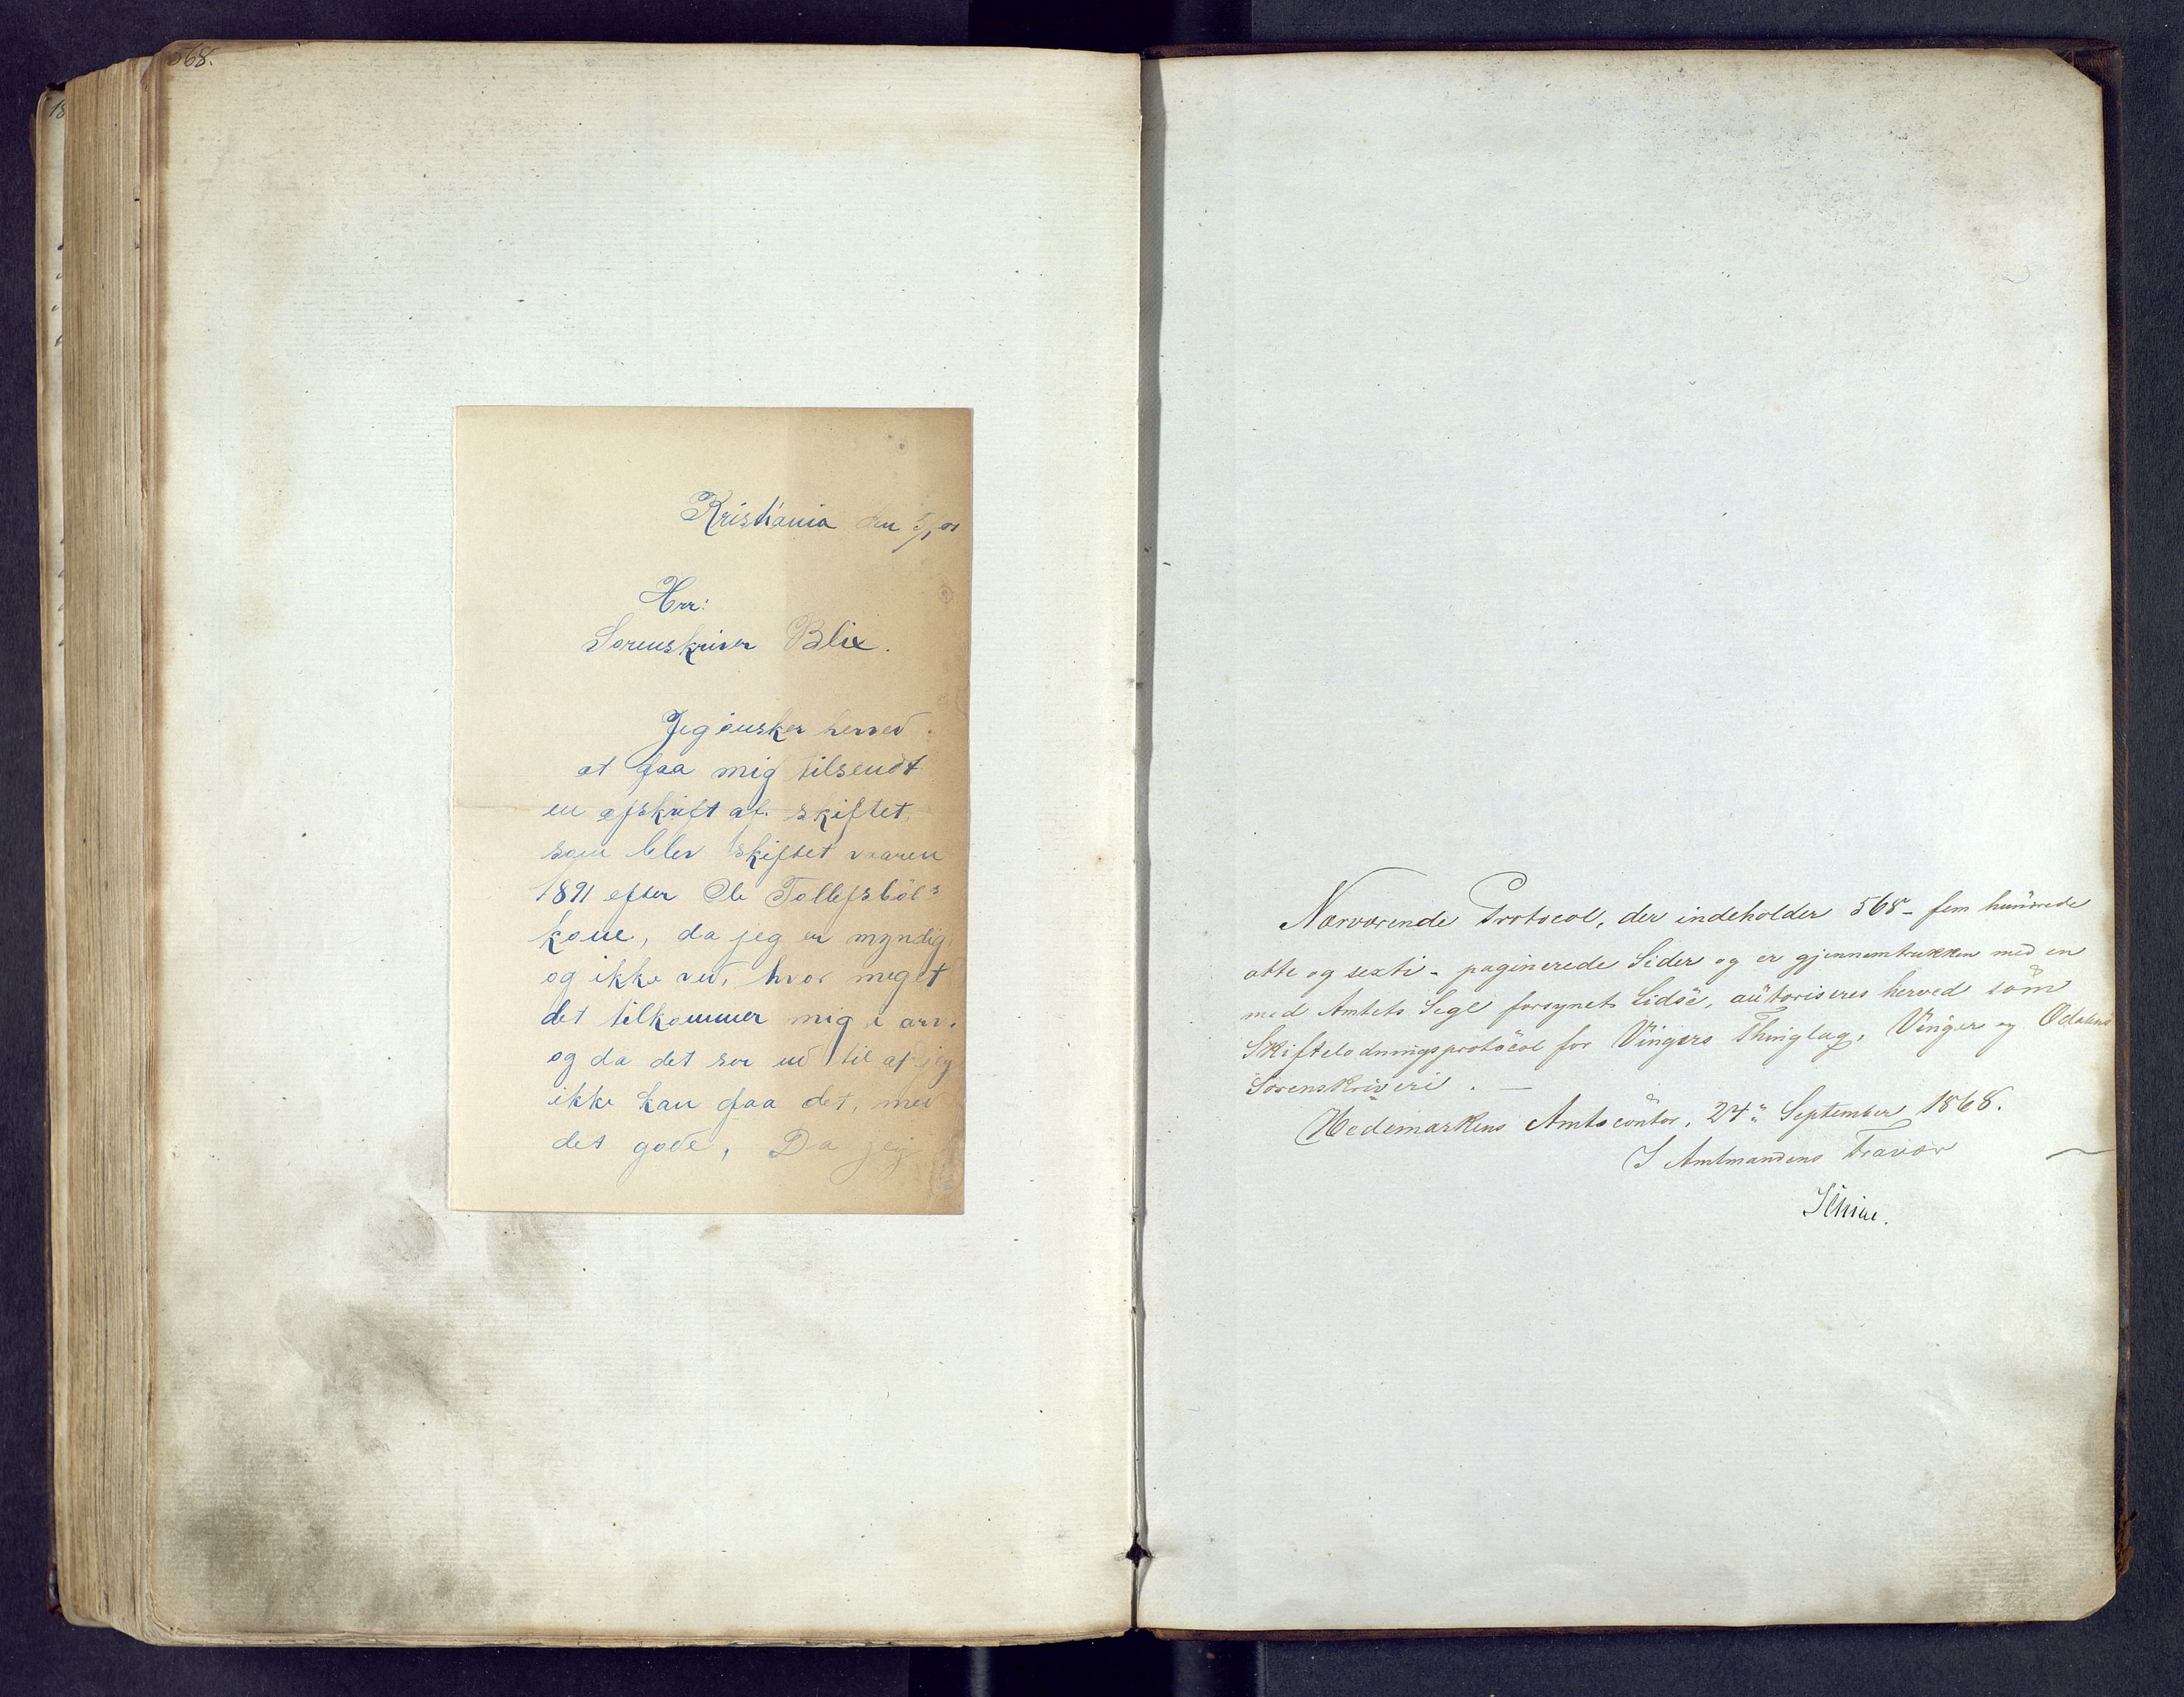 568.
Kristiania den 5/1 01
Hrr:
Sorenskriver Blix.
Jeg ønsker herved
at faa mig tilsendt
en afskrift af skiftet,
som blev skiftet vaaren
1891 efter Ole Tollefsböl's
kone, da jeg er myndig,
og ikke ved, hvor meget
det tilkommer mig i arv.
og da det ser ud til at jeg
ikke kan faa det, med
det gode, Da jeg
Nærværende Protocol, der indeholder 568 - fem hundrede
otte og sexti - paginerede Sider og er gjennemtrukken med en
med Amtets Segl forsynet Lidse, autoriseres herved som
Skiftelodningsprotocol for Vingers Thinglag, Vinger og Odalens
Sorenskriveri. —
Hedemarkens Amtscontor, 24" September 1868.
I Amtmandens Fravær